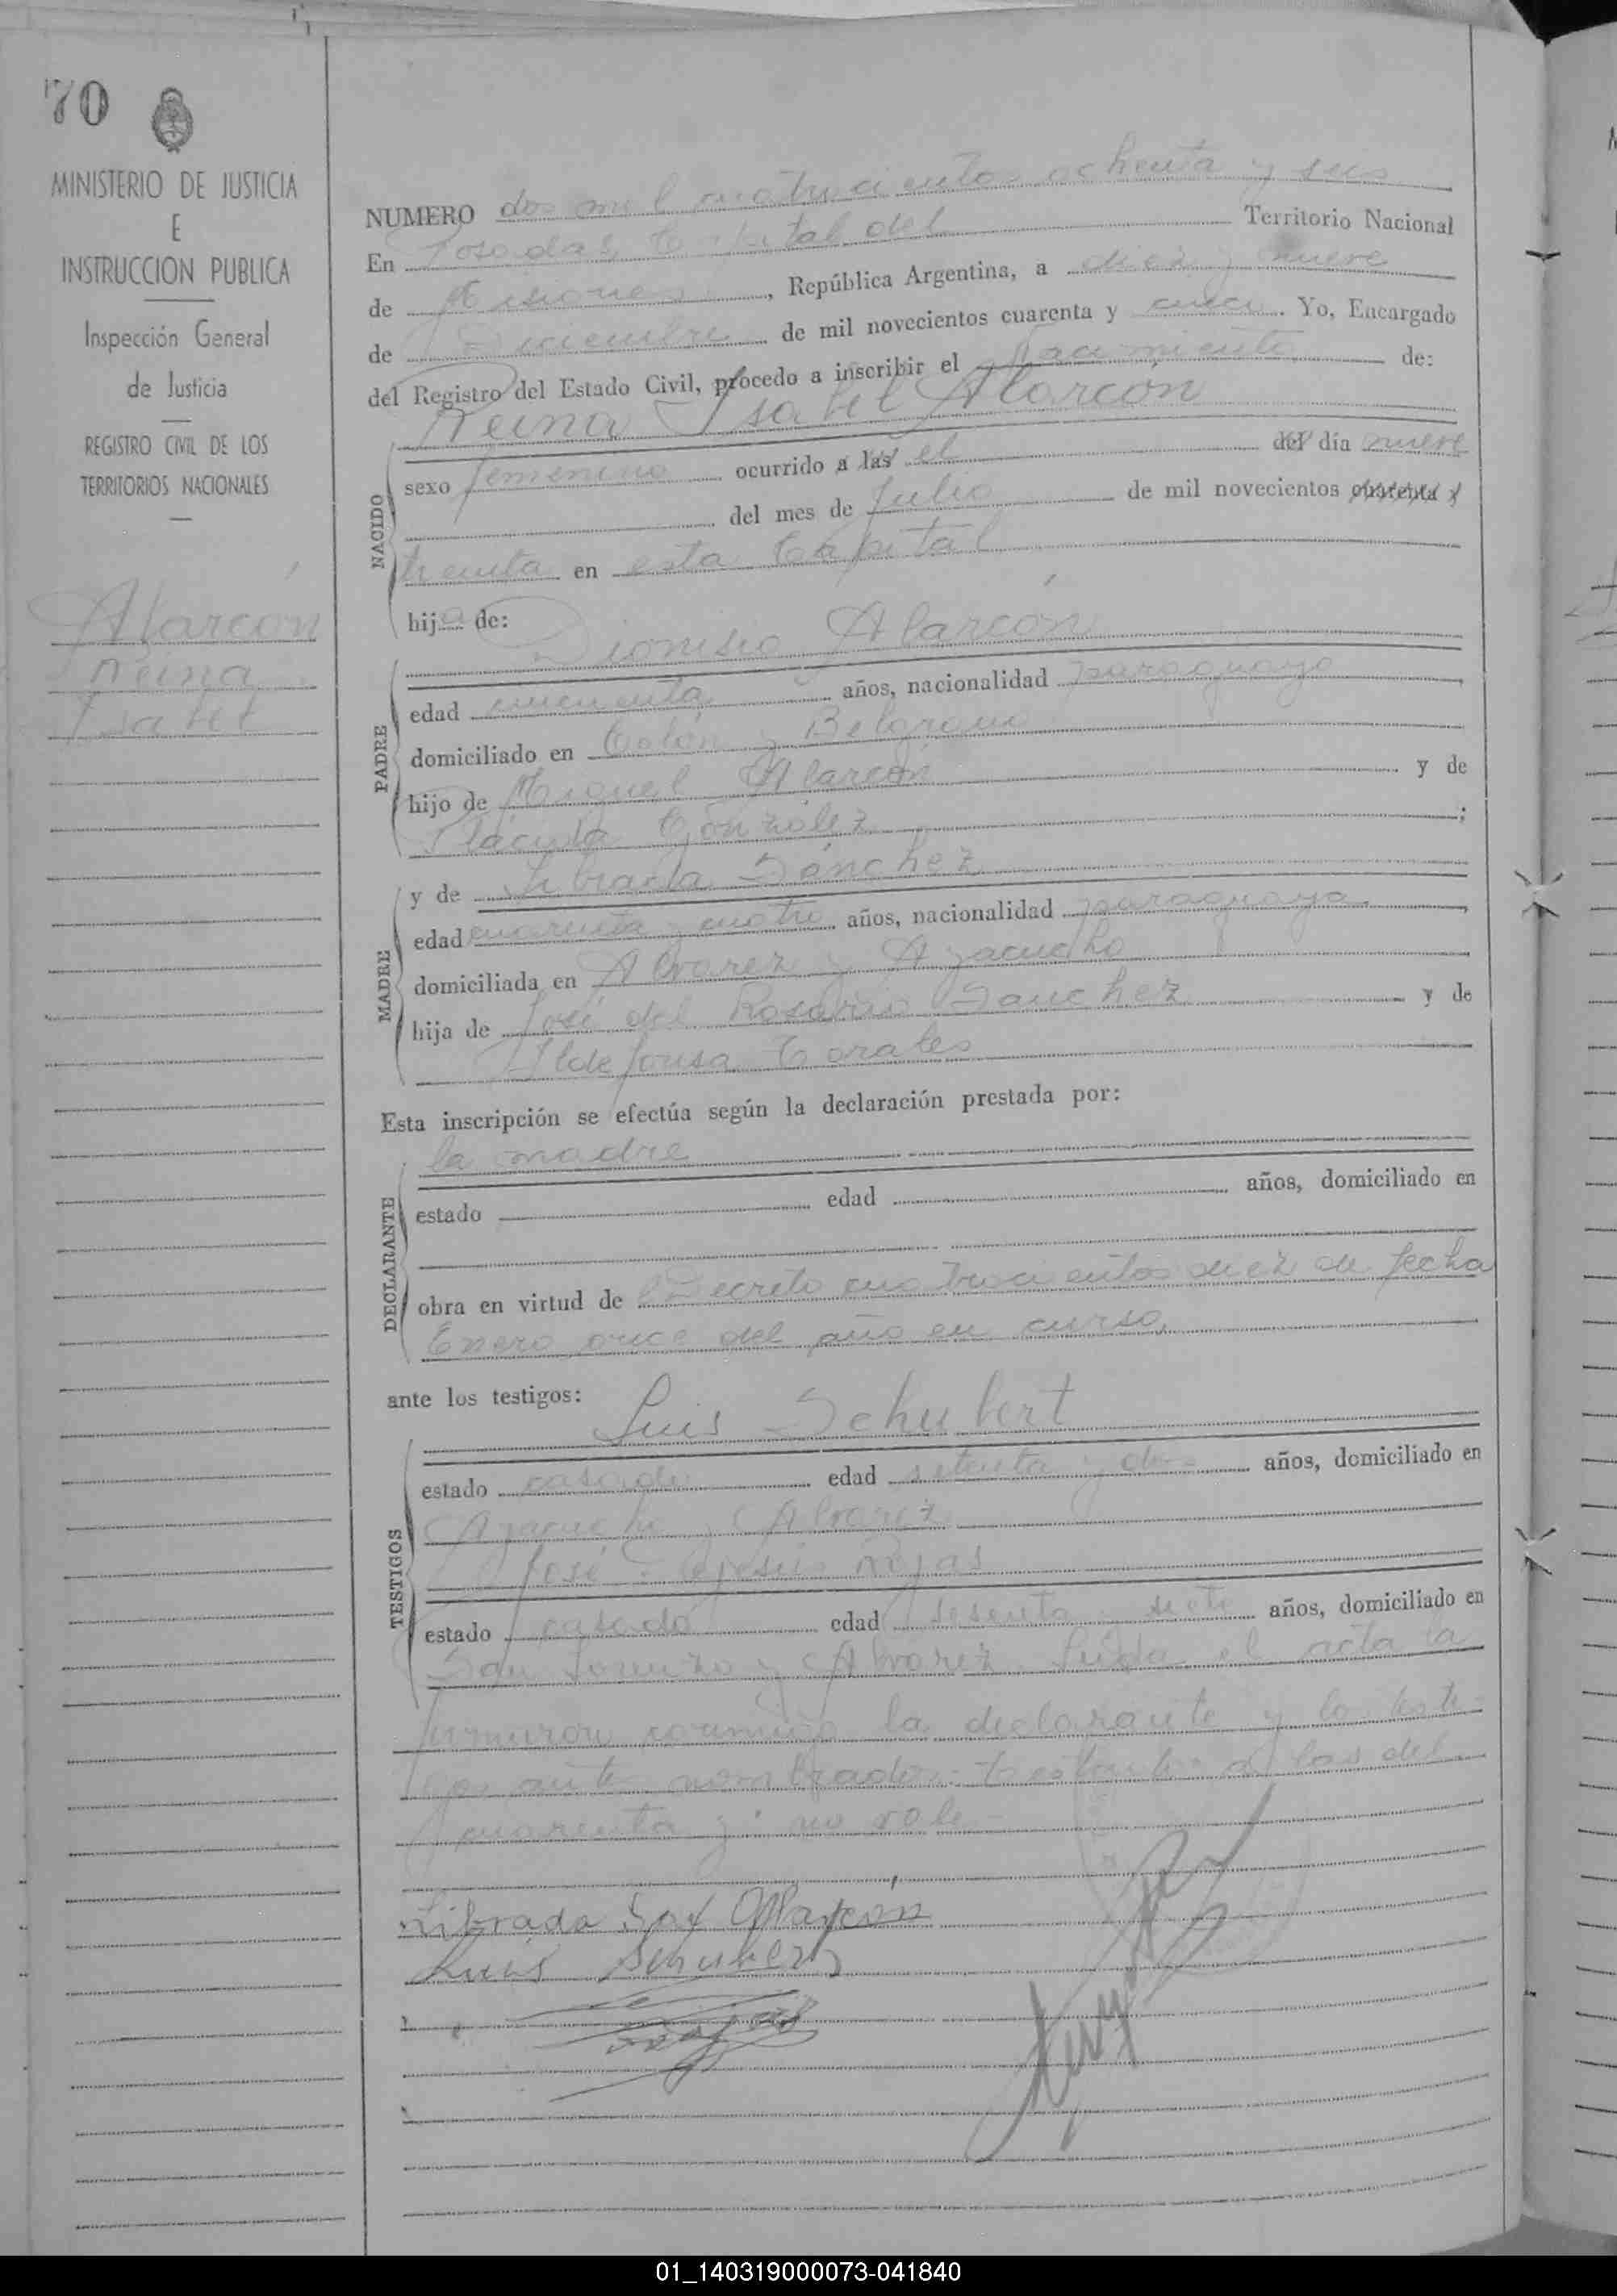 70
MINISTERIO DE JUSTICIA
E
INSTRUCCION PUBLICA
Inspección General
de Justicia
REGISTRO CIVIL DE LOS
TERRITORIOS NACIONALES
Alarcón
Reina
Isabel
NUMERO dos mil cuatrocientos ochenta y seis
En Posadas Capital del Territorio Nacional
de Misiones, República Argentina, a diez y nueve
de Diciembre de mil novecientos cuarenta y cinco. Yo, Encargado
del Registro del Estado Civil, procedo a inscribir el Nacimiento de:
Reina Isabel Alarcón
NACIDO
sexo femenino ocurrido a las el del día nueve
del mes de Julio de mil novecientos cuarenta y
treinta en esta Capital
hija de:
Dionisio Alarcón
PADRE
edad cincuenta años, nacionalidad paraguayo
domiciliado en Colón y Belgrano
hijo de Miguel Alarcón y de
Plácida González;
y de Librada Sánchez
MADRE
edad cuarenta y cuatro años, nacionalidad paraguaya
domiciliada en Alvarez y Ayacucho
hija de José del Rosario Sanchez y de
Ildefonsa Corales
Esta inscripción se efectúa según la declaración prestada por:
la madre
DECLARANTE
estado edad años, domiciliado en
obra en virtud de Decreto cuatrocientos diez de fecha
Enero once del año en curso,
ante los testigos:
Luis Schubert
TESTIGOS
estado casado edad setenta y dos años, domiciliado en
Ayacucho y Alvarez
José Rojas
estado casado edad sesenta y siete años, domiciliado en
San Lorenzo y Alvarez. Leída el acta la
firmaron conmigo la declarante y los testi-
gos ante nombrados. Testado: a las del
cuarenta y: no vale
Librada S. de Alarcon
Luis Schubert
Rojas
01_140319000073-041840